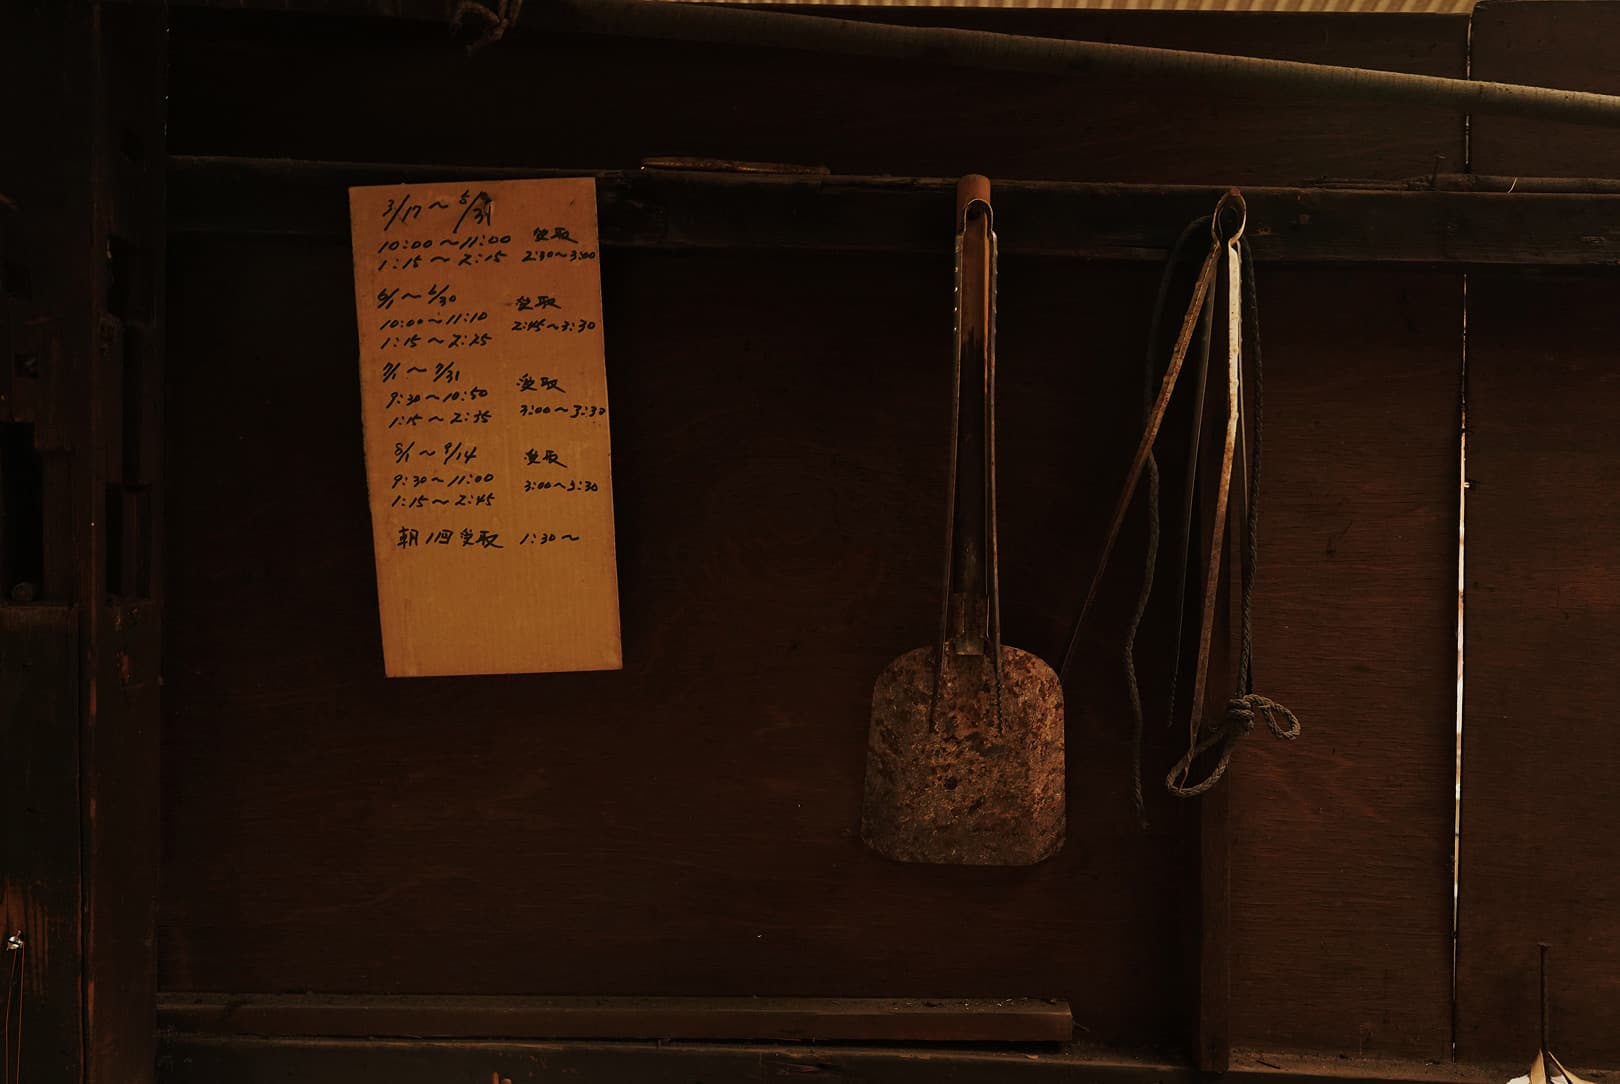 3/17〜5/31
10:00〜11:00 受取
1:15〜2:15 2:30〜3:00
6/1〜6/30 受取
10:00〜11:10 2:45〜3:30
1:15〜2:25
7/1〜7/31 受取
9:30〜10:50 3:00〜3:30
1:15〜2:35
8/1〜9/14 受取
9:30〜11:00 3:00〜3:30
1:15〜2:45
朝1回受取 1:30〜